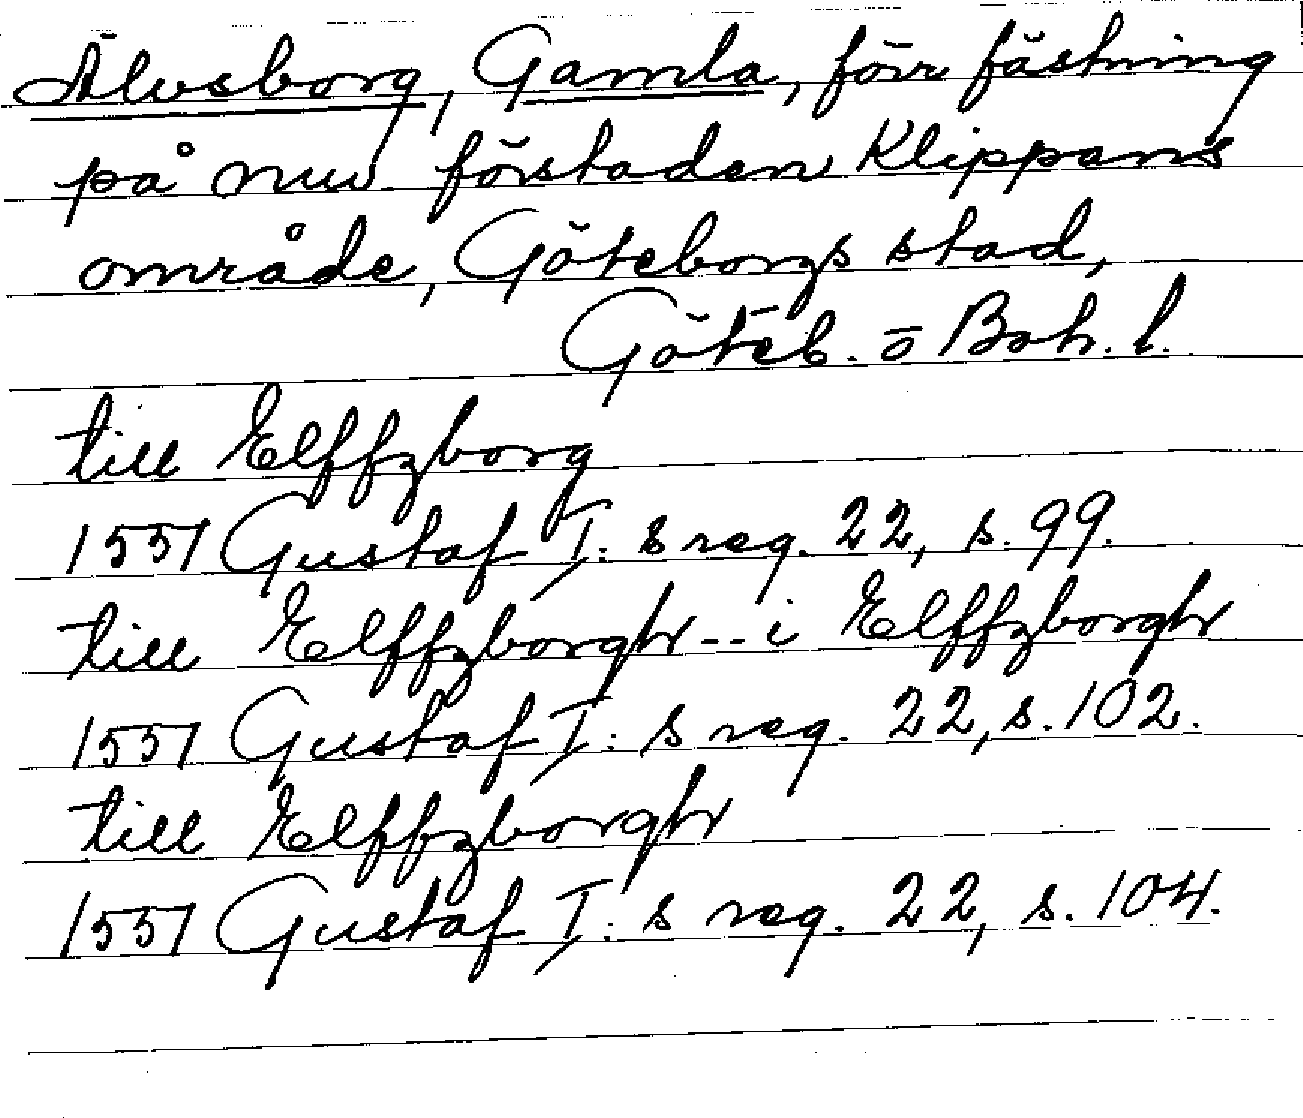 Älvsborg, Gamla, förr fästning
på nuv. förstaden Klippans
område, Göteborgs stad,
Göteb. o Boh. l.
till Elffzborg
1551 Gustaf I: s reg. 22, s. 99.
till Elffzborgh -- i Elffzborgh
1551 Gustaf I: s reg. 22, s. 102.
till Elffzborgh
1551 Gustaf I: s reg. 22, s. 104.